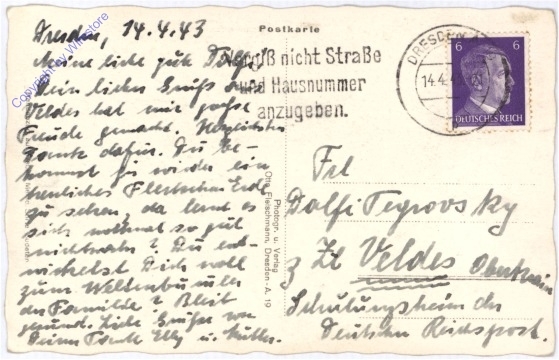 Postkarte
Dresden, 14.4.43
Meine liebe gute
Dein lieber Gruß
Veldes hat mir große
Freude gemacht. Herzlichsten
Dank dafür. Du be-
kommst ja wieder ein
herrliches Erde
zu sehen, da lernt es
sich nochmal so gut
nichtwahr? Du ent-
wickelst Dich wohl
zum
der Familie? Bleib
gesund. Liebe Grüße von
Deiner Tante Elly u. Mutter.
Vergiß nicht Straße
und Hausnummer
anzugeben.
DRESDEN
14.4.43
6 6
DEUTSCHES REICH
Frl
Dolfi Tegrovsky
z Zt Veldes Oberkrain
Schulungsheim der
Deutschen Reichspost.
Photogr. u. Verlag
Otto Fleischmann, Dresden-A. 19
Copyright by Winstore